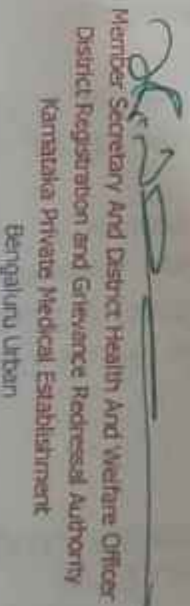 Member Secretary And District Health And Welfare Officer
District Registration and Grievance Redressal Authority
Karnataka Private Medical Establishment
Bengaluru Urban